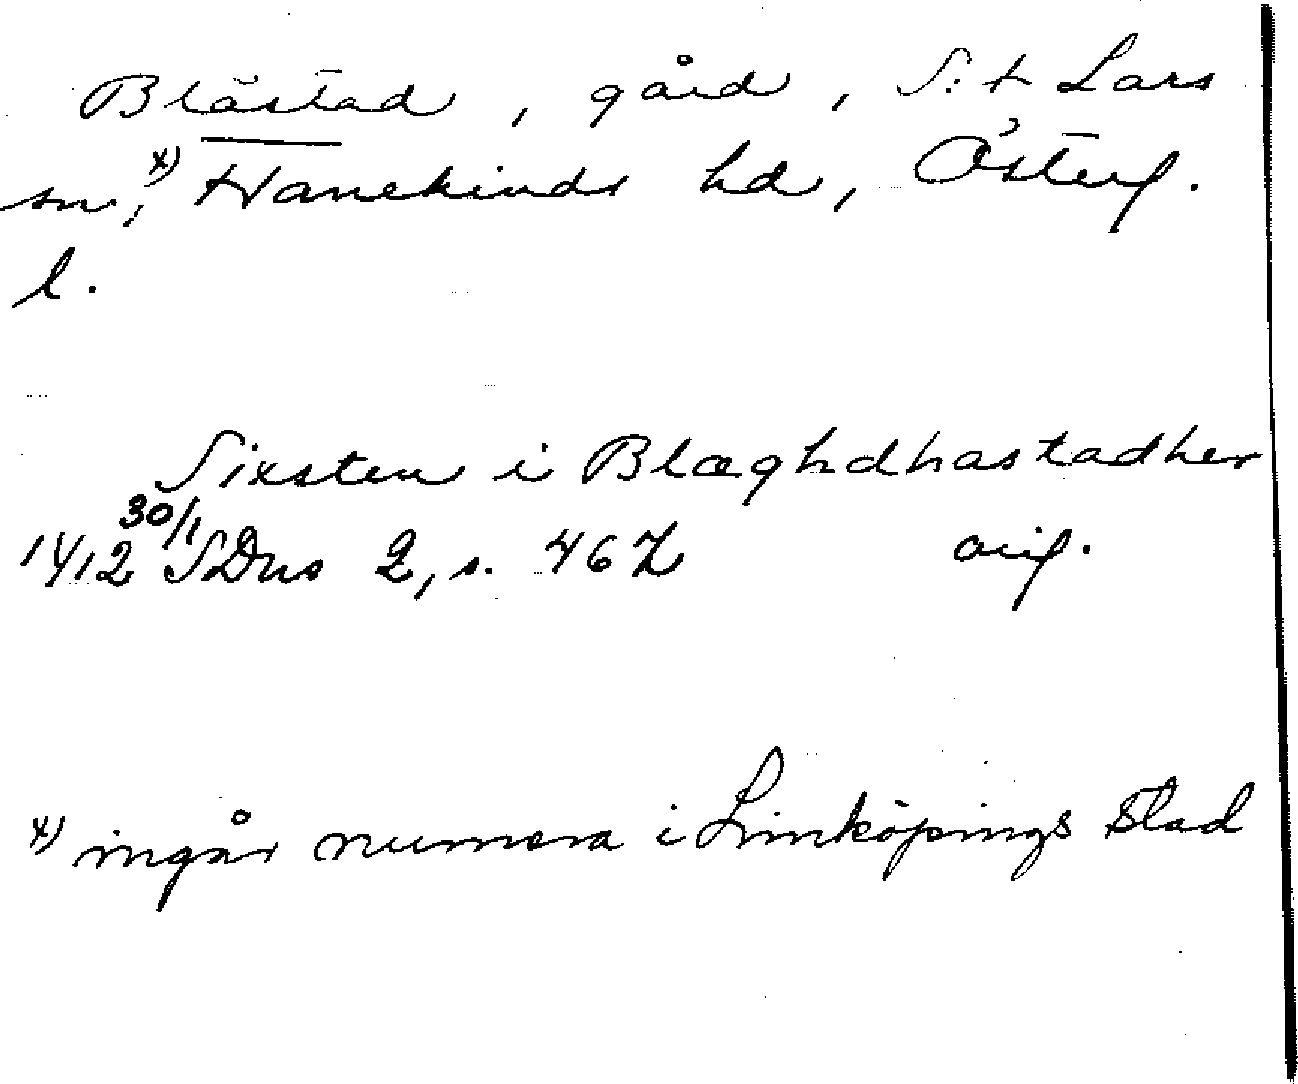 Blåstad, gård, S:t Lars
sn,x) Hanekinds hd, Österg.
l.
Sixsten i Blæghdhastadher
1412 30/1 SDns 2, s. 467 orig.
x) ingår numera i Linköpings stad